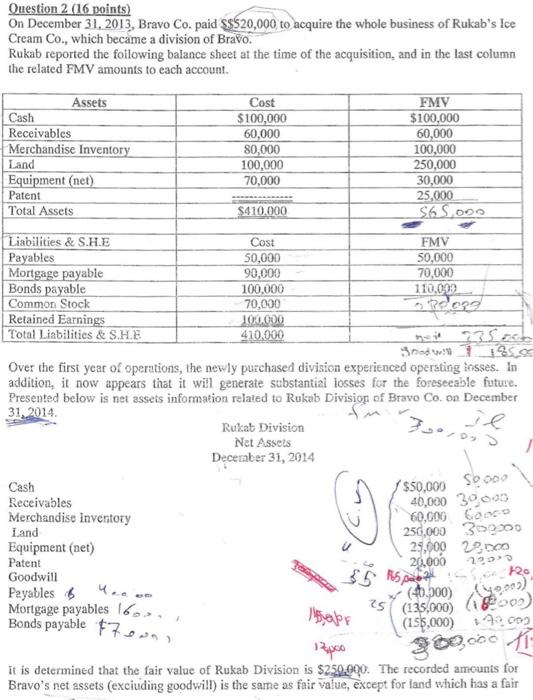 Question 2 (16 points)
On December 31, 2013, Bravo Co. paid $$520,000 to acquire the whole business of Rukab's Ice
Cream Co., which became a division of Bravo.
Rukab reported the following balance sheet at the time of the acquisition, and in the last column
the related FMV amounts to each account.
Assets Cost FMV
Cash $100,000 $100,000
Receivables 60,000 60,000
Merchandise Inventory 80,000 100,000
Land 100,000 250,000
Equipment (net) 70,000 30,000
Patent ------------- 25,000
Total Assets $410,000 565,000
Liabilities & S.H.E Cost FMV
Payables 50,000 50,000
Mortgage payable 90,000 70,000
Bonds payable 100,000 110,000
Common Stock 70,000
Retained Earnings 100,000
Total Liabilities & S.H.E 410,000 335,000
Goodwill
Over the first year of operations, the newly purchased division experienced operating losses. In
addition, it now appears that it will generate substantial losses for the foreseeable future.
Presented below is net assets information related to Rukab Division of Bravo Co. on December
31, 2014.
Rukab Division
Net Assets
December 31, 2014
Cash $50,000 50000
Receivables 40,000 30,000
Merchandise Inventory 60,000 60000
Land 250,000 300000
Equipment (net) 25,000
Patent 20,000
Goodwill
Payables (40,000)
Mortgage payables (135,000)
Bonds payable (155,000)
It is determined that the fair value of Rukab Division is $250,000. The recorded amounts for
Bravo's net assets (excluding goodwill) is the same as fair value, except for land which has a fair